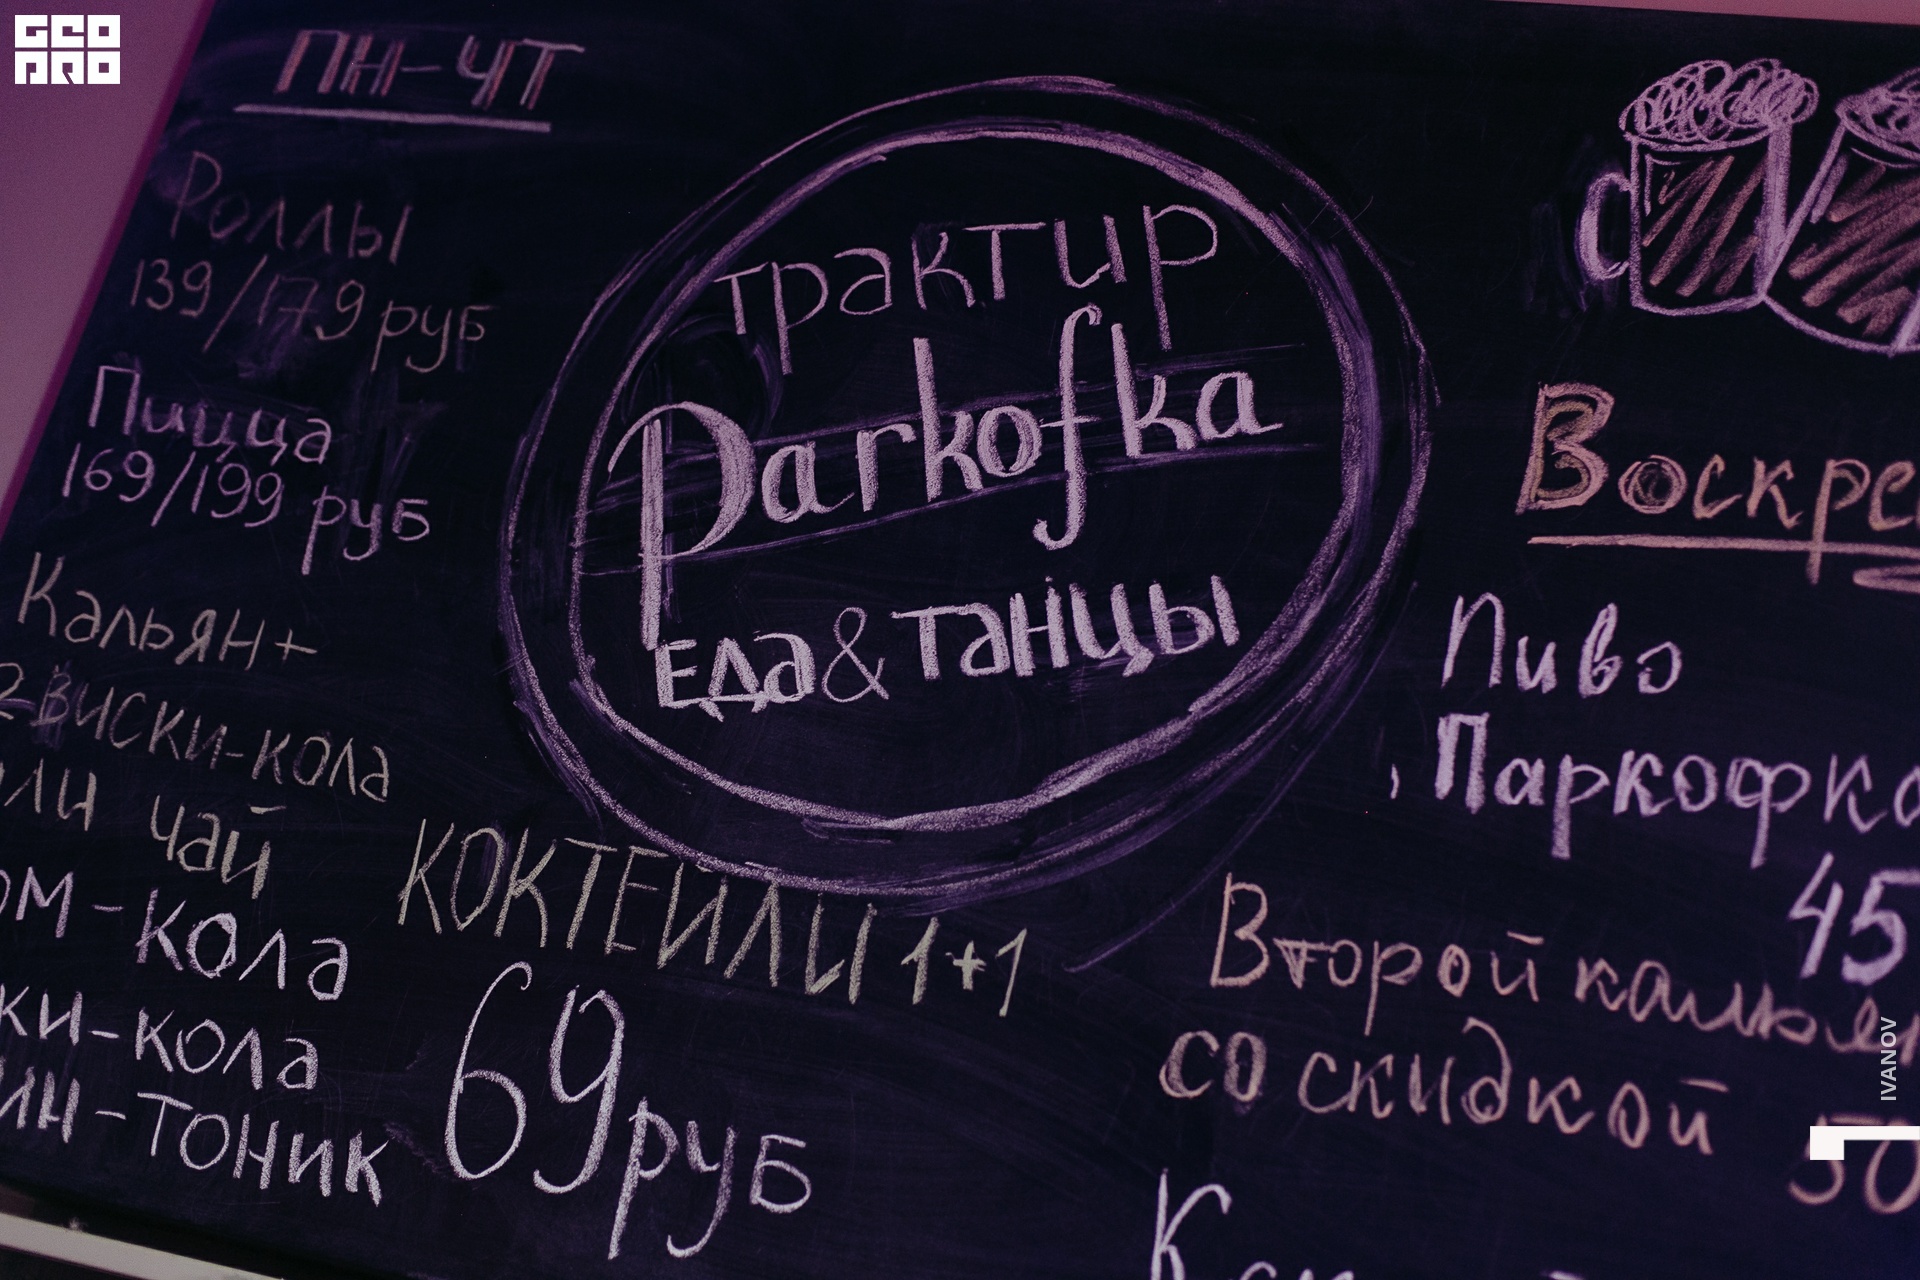 GEO
PRO
ПН-ЧТ
Роллы
139/179 руб
Пицца
169/199 руб
Кальян+
2 виски-кола
или чай
ом-кола
ки-кола
ин-тоник
трактир
Parkofka
Еда & танцы
КОКТЕЙЛИ 1+1
69 руб
Воскре
Пиво
Паркофка
45
Второй кальян
со скидкой
50
IVANOV